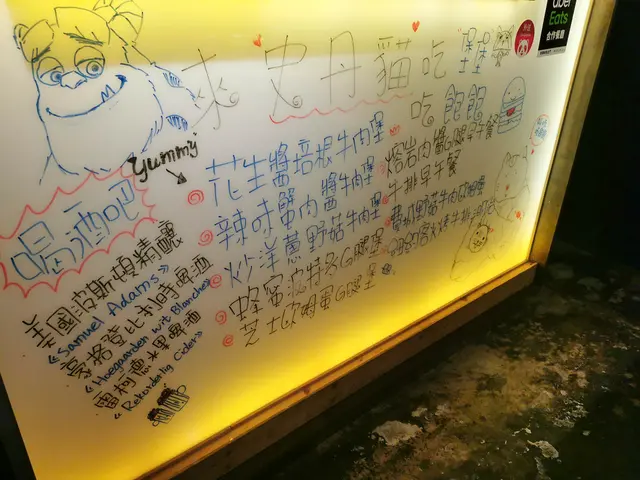 來史丹貓吃"堡堡"
吃飽飽
Uber
Eats
合作餐廳
yummy
喝酒吧
花生醬培根牛肉堡
辣味蟹肉醬牛肉堡
炒洋蔥野菇牛肉堡
蜂蜜波特多G腿堡
芝士歐姆蛋G腿堡
熔岩肉醬G腿早午餐
牛排早午餐
美國波斯頓精釀
<Samuel Adams>
豪格登比利時啤酒
<Hoegaarden Wit Blanche>
雷柯德水果啤酒
<Rekorderlig Cider>